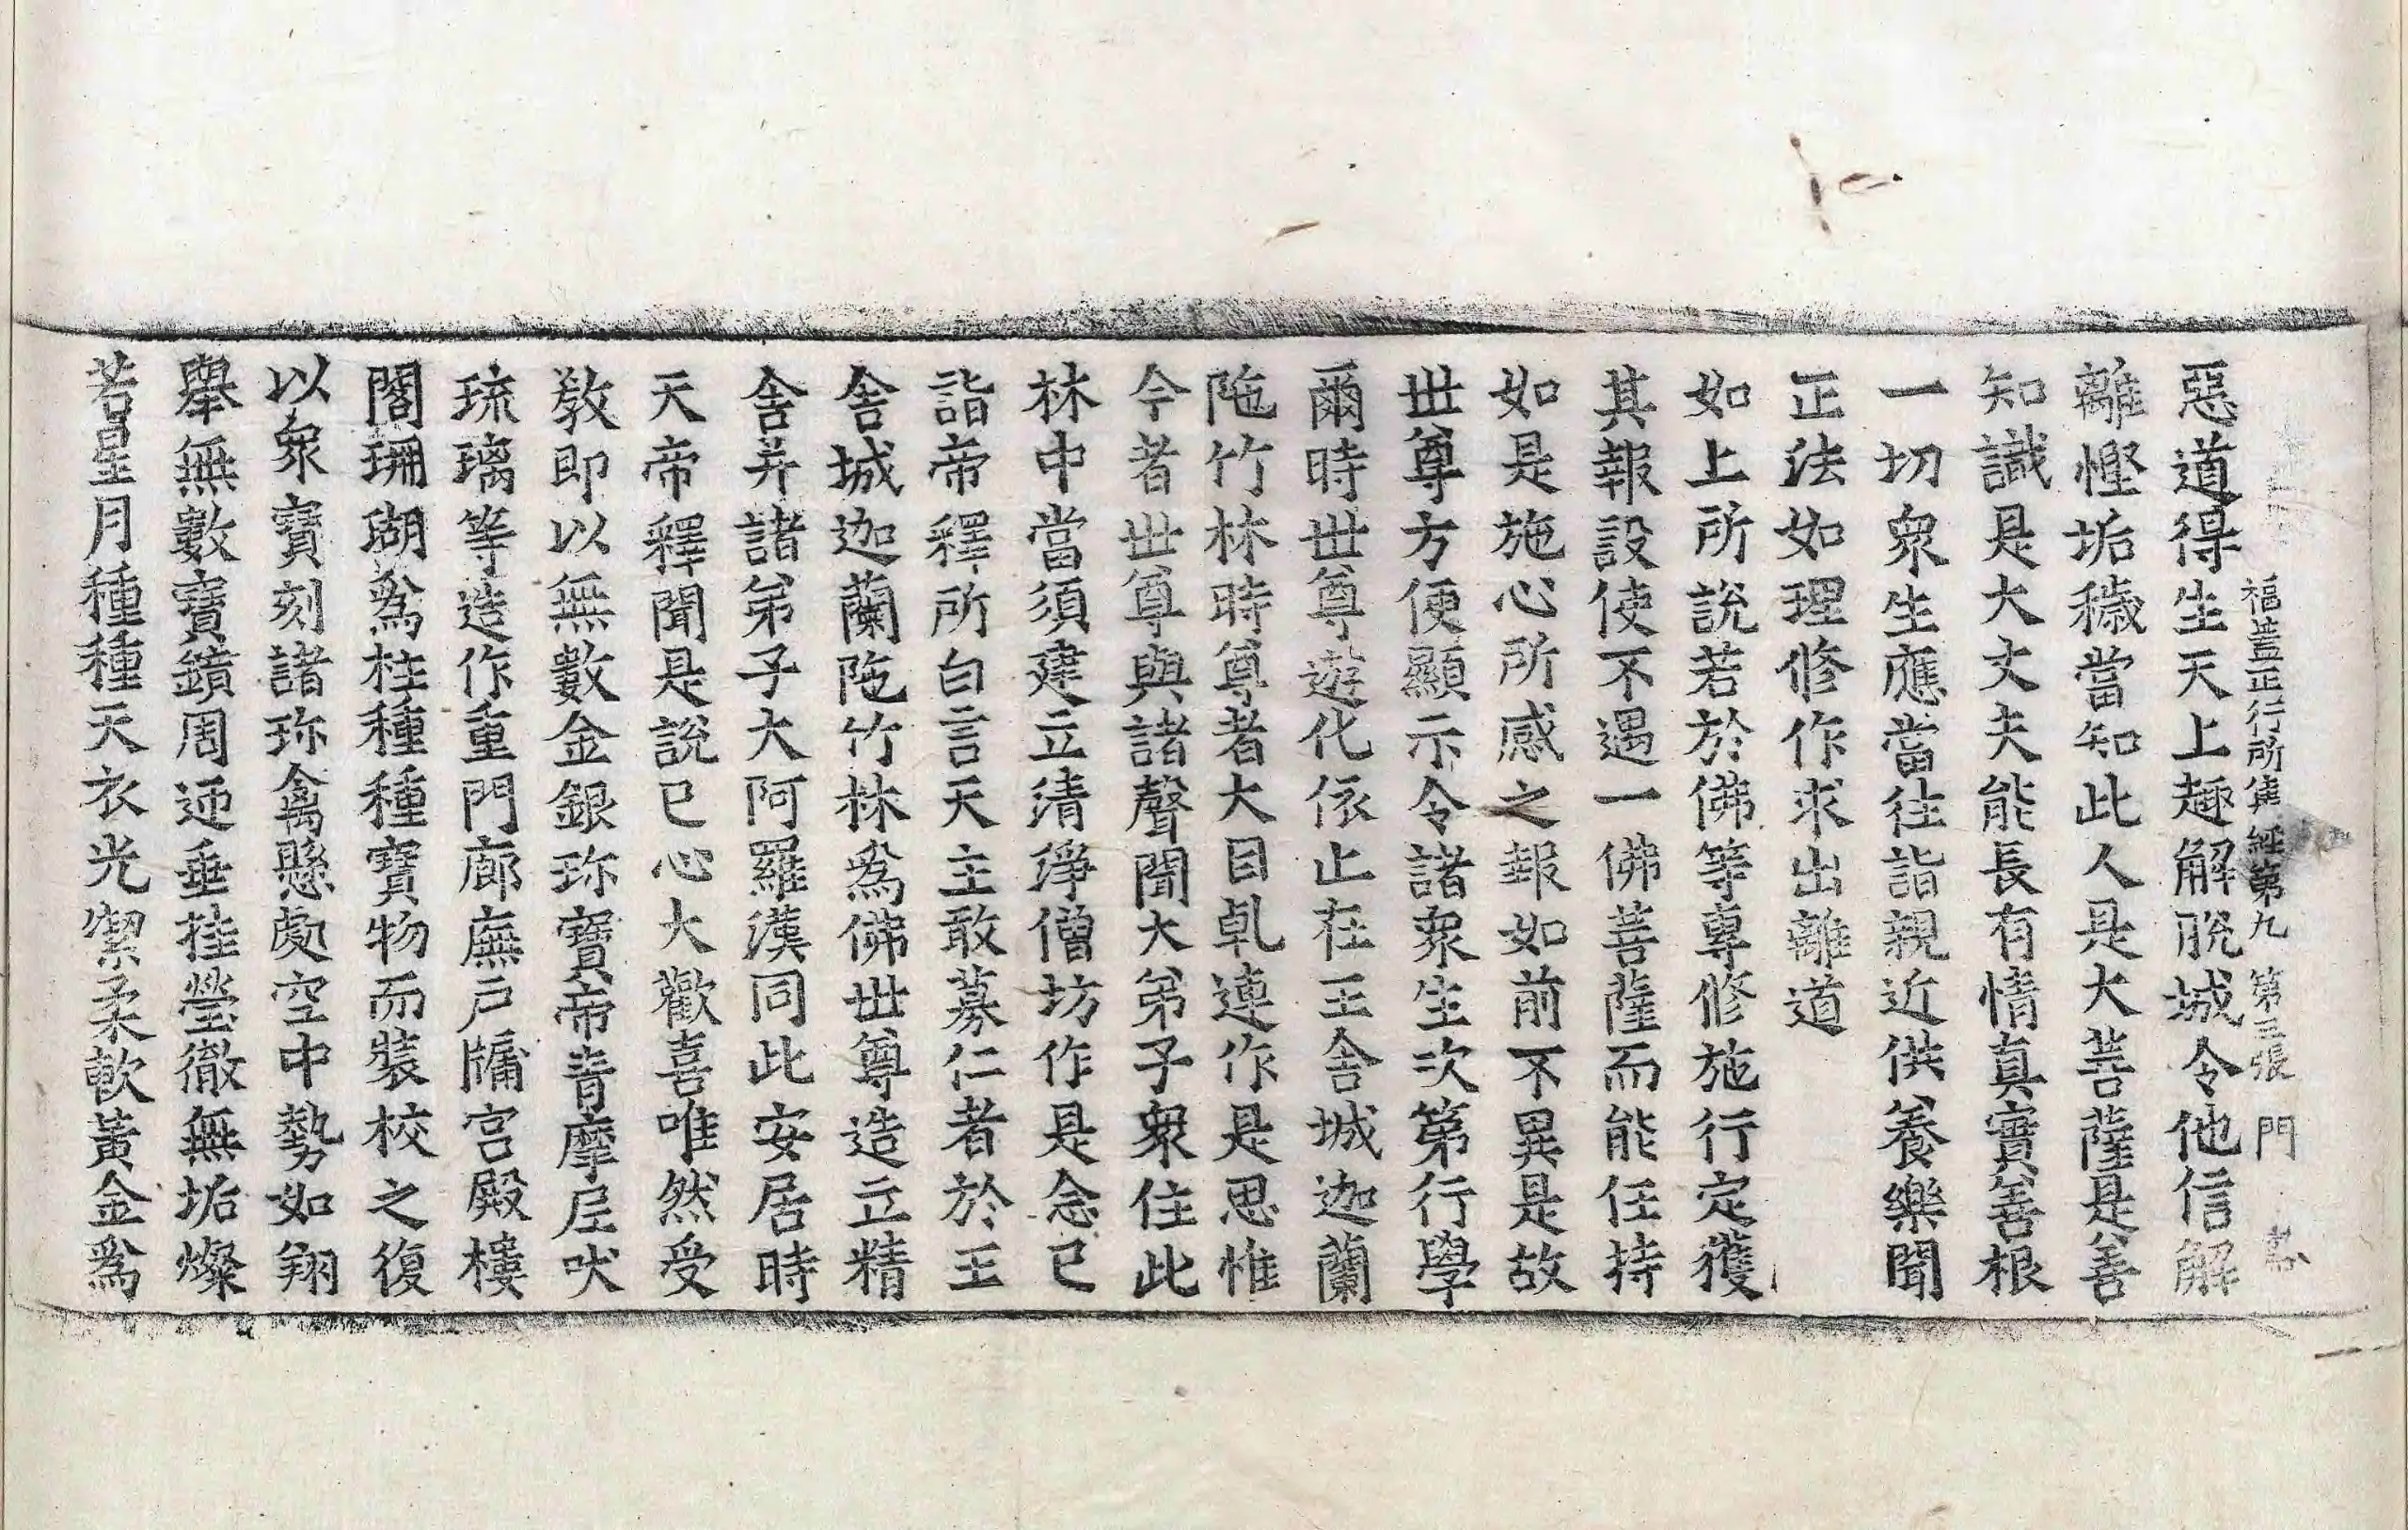 福蓋正行所集經第九 第三張 門
惡道得生天上趣解脫城令他信解
離慳垢穢當知此人是大菩薩是善
知識是大丈夫能長有情真實善根
一切衆生應當往詣親近供養樂聞
正法如理修作求出離道
如上所說若於佛等專修施行定獲
其報設使不遇一佛菩薩而能任持
如是施心所感之報如前不異是故
世尊方便顯示令諸衆生次第行學
爾時世尊遊化依止在王舍城迦蘭
陁竹林時尊者大目乹連作是思惟
今者世尊與諸聲聞大弟子衆住此
林中當須建立清淨僧坊作是念已
詣帝釋所白言天主敢募仁者於王
舍城迦蘭陁竹林爲佛世尊造立精
舍并諸弟子大阿羅漢同此安居時
天帝釋聞是說已心大歡喜唯然受
敎即以無數金銀珎寶帝青摩尼吠
琉璃等造作重門廊廡戶牖宮殿樓
閣珊瑚爲柱種種寶物而裝校之復
以衆寶刻諸珎禽懸處空中勢如翔
舉無數寶鏡周迊垂挂瑩徹無垢燦
若星月種種天衣光潔柔軟黃金爲